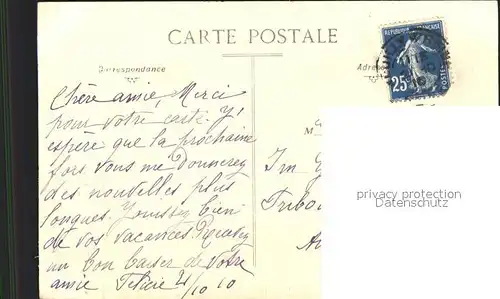 CARTE POSTALE
Correspondance
Adresse
REPUBLIQUE FRANÇAISE
25
POSTES
Chère amie, Merci
pour votre carte. J'
espère que la prochaine
fois vous me donnerez
des nouvelles plus
longues. Jouissez bien
de vos vacances. Recevez
un bon baiser de votre
amie Félicie 4/10 10
M
Tribo
privacy protection
Datenschutz